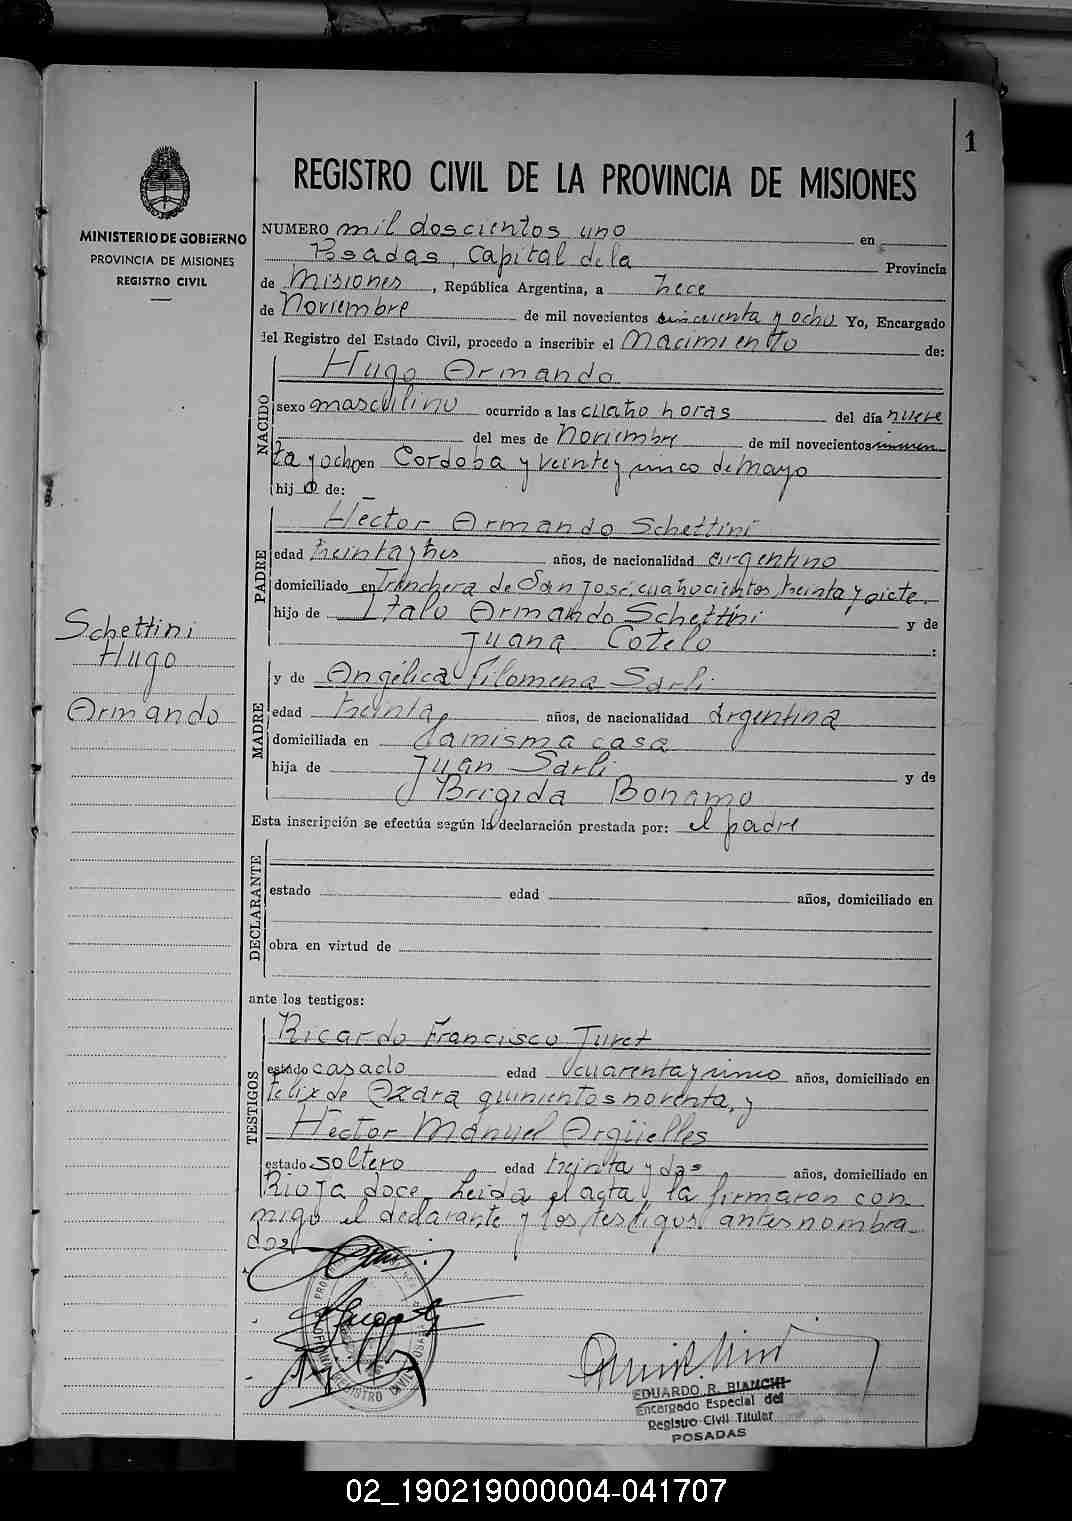 1
REGISTRO CIVIL DE LA PROVINCIA DE MISIONES
MINISTERIO DE GOBIERNO
PROVINCIA DE MISIONES
REGISTRO CIVIL
NUMERO mil doscientos uno en
Posadas, Capital de la Provincia
de Misiones, República Argentina, a trece
de Noviembre de mil novecientos cincuenta y ocho Yo, Encargado
del Registro del Estado Civil, procedo a inscribir el Nacimiento de:
NACIDO
Hugo Armando
sexo masculino ocurrido a las cuatro horas del día nueve
del mes de Noviembre de mil novecientos cincuen
ta y ocho en Cordoba y veinte y cinco de Mayo
hijo de:
PADRE
Hector Armando Schettini
edad treinta y tres años, de nacionalidad argentino
domiciliado en Trinchera de San José, cuatrocientos treinta y siete.
hijo de Italo Armando Schettini y de
Juana Cotelo :
Schettini
Hugo
Armando
MADRE
y de Angélica Filomena Sarli
edad treinta, años, de nacionalidad argentina
domiciliada en la misma casa
hija de Juan Sarli y de
Brigida Bonamo
Esta inscripción se efectúa según la declaración prestada por: el padre
DECLARANTE
estado edad años, domiciliado en
obra en virtud de
ante los testigos:
TESTIGOS
Ricardo Francisco Turet
estado casado edad cuarenta y cinco años, domiciliado en
Felix de Azara quinientos noventa, y
Hector Manuel Argüelles
estado soltero edad treinta y dos años, domiciliado en
Rioja doce. Leida el acta, la firmaron con
migo el declarante y los testigos antes nombra-
dos
EDUARDO R. BIANCHI
Encargado Especial del
Registro Civil Titular
POSADAS
02_190219000004-041707